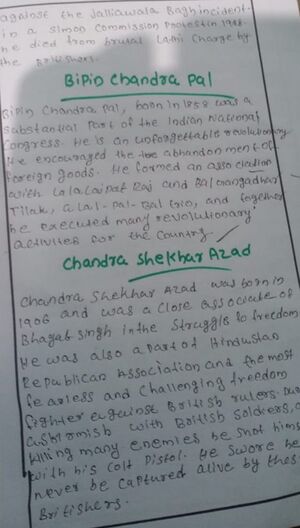 against the Jalliawala Bagh incident.
in a simon Commission Protest in 1928.
he died from brutal Lathi Charge by
the Britishers.
Bipin Chandra Pal
Bipin Chandra Pal, born in 1858 was a
substantial Part of the Indian National
Congress. He is an unforgettable revolutionary
He encouraged the abhandonment of
foreign goods. He formed an association
with Lala Lajpat Raj and Bal Gangadhar
Tilak, a Lal-Pal-Bal trio, and together
he executed many revolutionary
activities for the Country
Chandra Shekhar Azad
Chandra Shekhar Azad was born in
1906 and was a close associate of
Bhagat Singh in the Struggle to freedom
He was also a Part of Hindustan
Republican Association and the most
fearless and Challenging freedom
fighter against British rulers. Dur
a skirmish with British Soldiers, a
killing many enemies he shot hims
with his Colt Pistol. He swore he
never be captured alive by thes
Britishers.